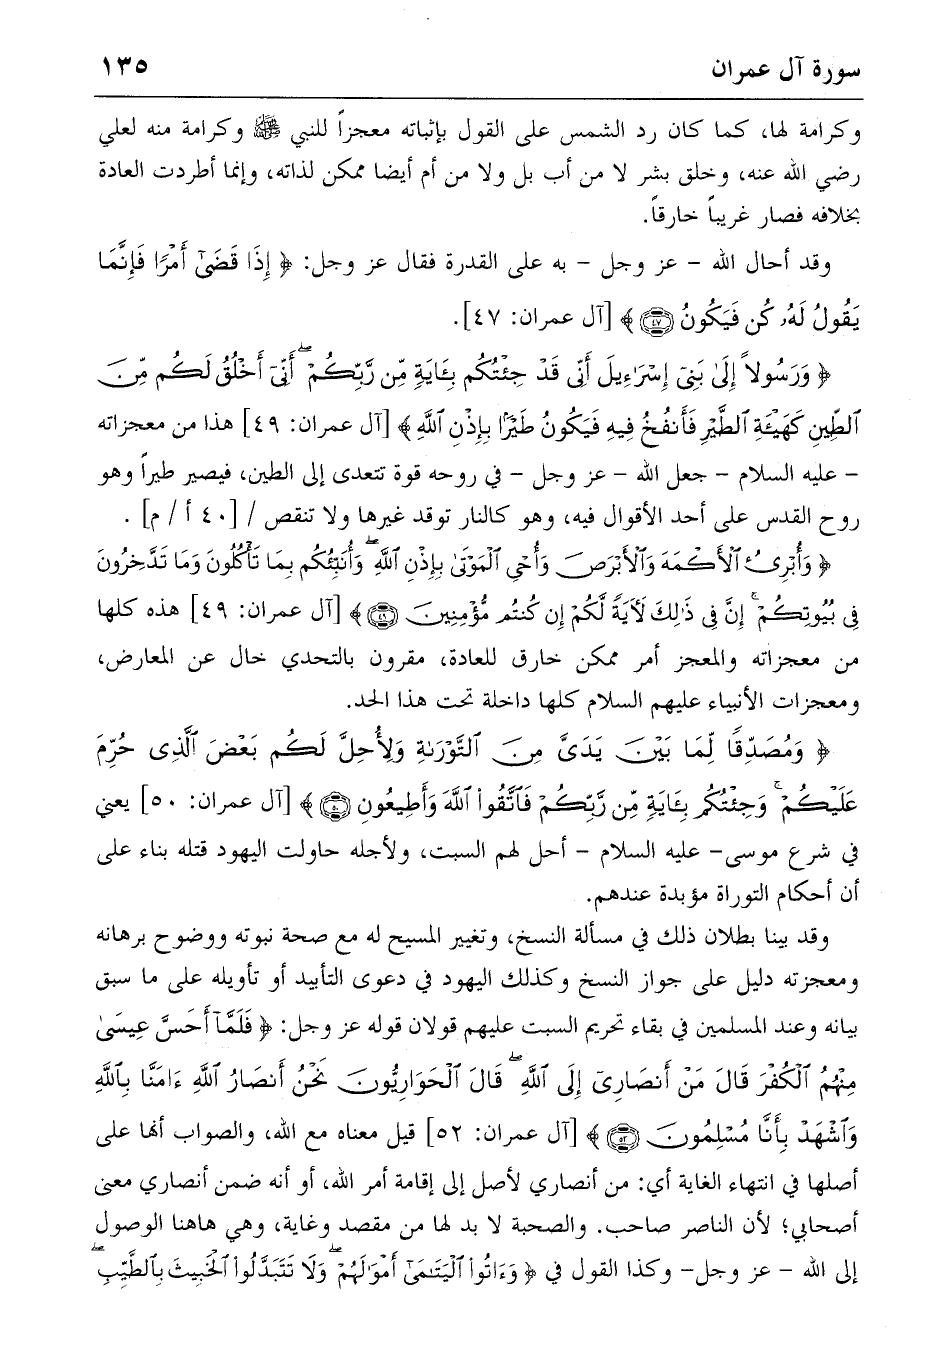 سورة آل عمران ١٣٥
وكرامة لها، كما كان رد الشمس على القول بإثباته معجزاً للنبي ﷺ وكرامة منه لعلي
رضي الله عنه، وخلق بشر لا من أب بل ولا من أم أيضا ممكن لذاته، وإنما أطردت العادة
بخلافه فصار غريباً خارقاً.
وقد أحال الله - عز وجل - به على القدرة فقال عز وجل: ﴿ إِذَا قَضَىٰٓ أَمْرًا فَإِنَّمَا
يَقُولُ لَهُۥ كُن فَيَكُونُ ٤٧ ﴾ [آل عمران: ٤٧].
﴿ وَرَسُولاً إِلَىٰ بَنِىٓ إِسْرَٰٓءِيلَ أَنِّى قَدْ جِئْتُكُم بِـَٔايَةٍ مِّن رَّبِّكُمْ ۖ أَنِّىٓ أَخْلُقُ لَكُم مِّنَ
ٱلطِّينِ كَهَيْـَٔةِ ٱلطَّيْرِ فَأَنفُخُ فِيهِ فَيَكُونُ طَيْرًۢا بِإِذْنِ ٱللَّهِ ﴾ [آل عمران: ٤٩] هذا من معجزاته
- عليه السلام - جعل الله - عز وجل - في روحه قوة تتعدى إلى الطين، فيصير طيراً وهو
روح القدس على أحد الأقوال فيه، وهو كالنار توقد غيرها ولا تنقص / [٤٠ أ / م] .
﴿ وَأُبْرِئُ ٱلْأَكْمَهَ وَٱلْأَبْرَصَ وَأُحْىِ ٱلْمَوْتَىٰ بِإِذْنِ ٱللَّهِ ۖ وَأُنَبِّئُكُم بِمَا تَأْكُلُونَ وَمَا تَدَّخِرُونَ
فِى بُيُوتِكُمْ ۚ إِنَّ فِى ذَٰلِكَ لَـَٔايَةً لَّكُمْ إِن كُنتُم مُّؤْمِنِينَ ٤٩ ﴾ [آل عمران: ٤٩] هذه كلها
من معجزاته والمعجز أمر ممكن خارق للعادة، مقرون بالتحدي خال عن المعارض،
ومعجزات الأنبياء عليهم السلام كلها داخلة تحت هذا الحد.
﴿ وَمُصَدِّقًا لِّمَا بَيْنَ يَدَىَّ مِنَ ٱلتَّوْرَىٰةِ وَلِأُحِلَّ لَكُم بَعْضَ ٱلَّذِى حُرِّمَ
عَلَيْكُمْ ۚ وَجِئْتُكُم بِـَٔايَةٍ مِّن رَّبِّكُمْ فَٱتَّقُوا۟ ٱللَّهَ وَأَطِيعُونِ ٥٠ ﴾ [آل عمران: ٥٠] يعني
في شرع موسى- عليه السلام - أحل لهم السبت، ولأجله حاولت اليهود قتله بناء على
أن أحكام التوراة مؤبدة عندهم.
وقد بينا بطلان ذلك في مسألة النسخ، وتغيير المسيح له مع صحة نبوته ووضوح برهانه
ومعجزته دليل على جواز النسخ وكذلك اليهود في دعوى التأبيد أو تأويله على ما سبق
بيانه وعند المسلمين في بقاء تحريم السبت عليهم قولان قوله عز وجل: ﴿ فَلَمَّآ أَحَسَّ عِيسَىٰ
مِنْهُمُ ٱلْكُفْرَ قَالَ مَنْ أَنصَارِىٓ إِلَى ٱللَّهِ ۖ قَالَ ٱلْحَوَارِيُّونَ نَحْنُ أَنصَارُ ٱللَّهِ ءَامَنَّا بِٱللَّهِ
وَٱشْهَدْ بِأَنَّا مُسْلِمُونَ ٥٢ ﴾ [آل عمران: ٥٢] قيل معناه مع الله، والصواب أنها على
أصلها في انتهاء الغاية أي: من أنصاري لأصل إلى إقامة أمر الله، أو أنه ضمن أنصاري معنى
أصحابي؛ لأن الناصر صاحب. والصحبة لا بد لها من مقصد وغاية، وهي هاهنا الوصول
إلى الله - عز وجل- وكذا القول في ﴿ وَءَاتُوا۟ ٱلْيَتَـٰمَىٰٓ أَمْوَٰلَهُمْ ۖ وَلَا تَتَبَدَّلُوا۟ ٱلْخَبِيثَ بِٱلطَّيِّبِ ۖ